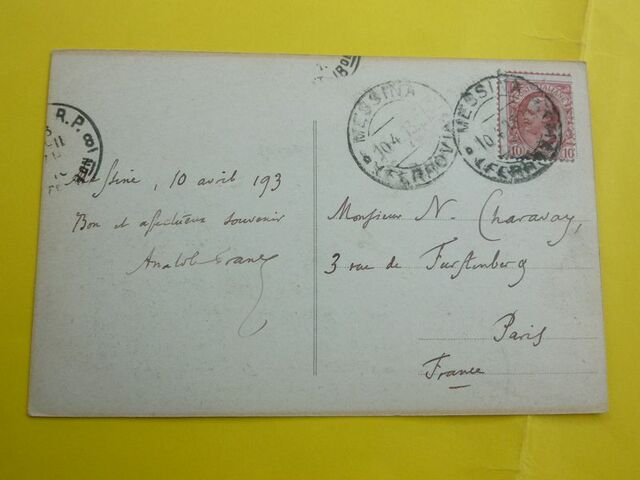 MESSINA
10.4.13
(FERROVIA)
MESSINA
10.4
(FERROVIA)
10 10
R.P.
Messine, 10 avril 193
Bon et affectueux souvenir
Anatole France
Monsieur N. Charavay,
3 rue de Furstenberg
Paris
France